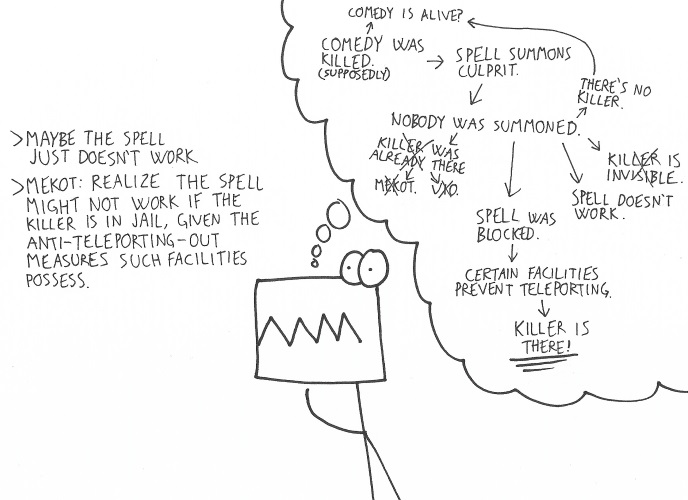 >MAYBE THE SPELL
JUST DOESN'T WORK
>MEKOT: REALIZE THE SPELL
MIGHT NOT WORK IF THE
KILLER IS IN JAIL, GIVEN THE
ANTI-TELEPORTING-OUT
MEASURES SUCH FACILITIES
POSSESS.
COMEDY IS ALIVE?
COMEDY WAS
KILLED.
(SUPPOSEDLY)
SPELL SUMMONS
CULPRIT.
THERE'S NO
KILLER.
NOBODY WAS SUMMONED.
KILLER WAS
ALREADY THERE
MEKOT.
UXO.
KILLER IS
INVISIBLE.
SPELL DOESN'T
WORK.
SPELL WAS
BLOCKED.
CERTAIN FACILITIES
PREVENT TELEPORTING.
KILLER IS
THERE!